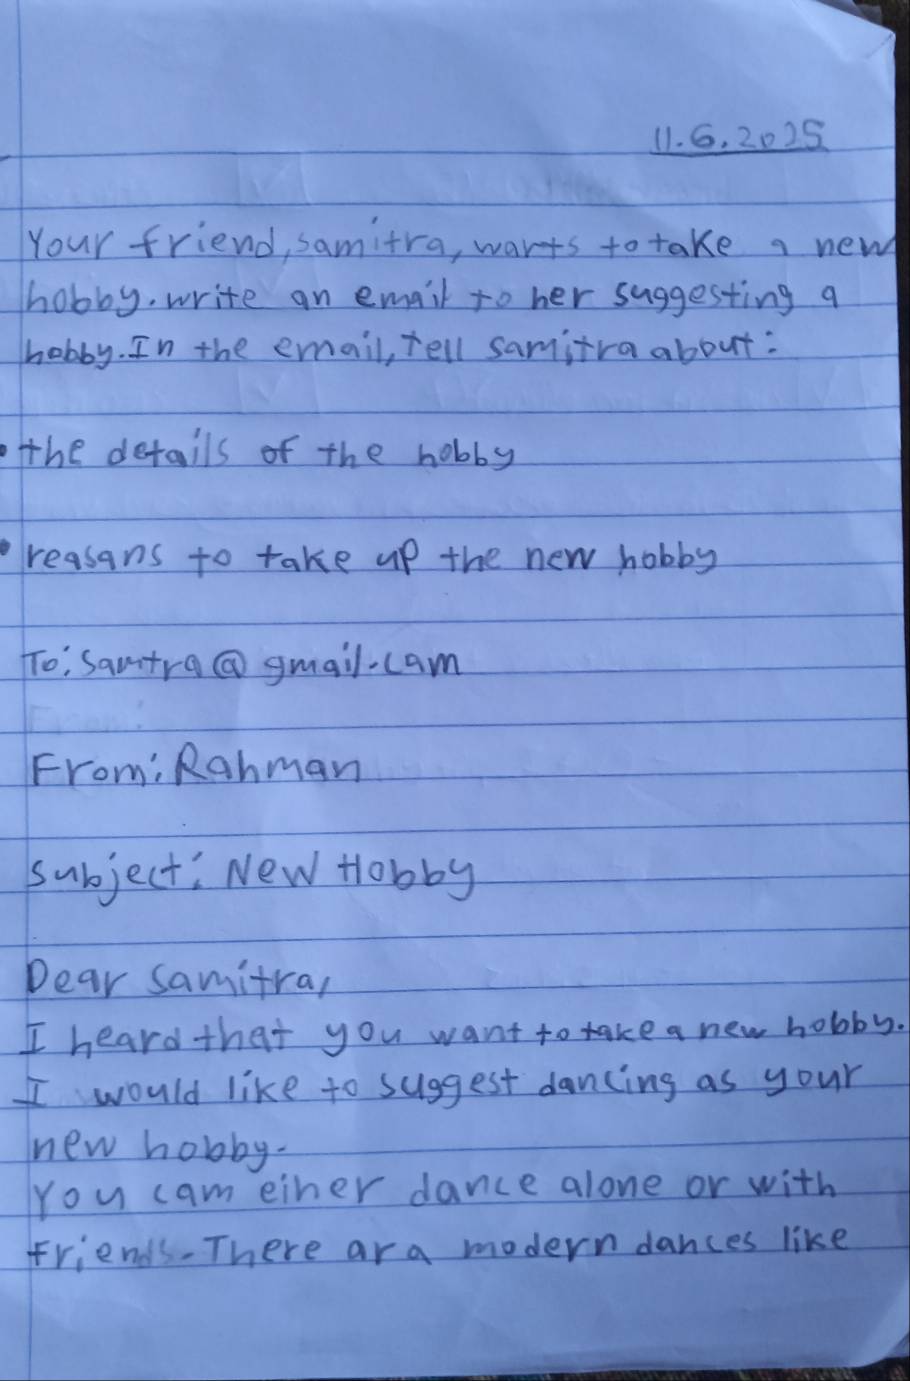 11.6.2025
Your friend, samitra, warts to take a new
hobby. write an email to her suggesting a
hobby. In the email, tell samitra about:
• the details of the hobby
• reasans to take up the new hobby
To: samtra@gmail.cam
From: Rahman
subject: New Hobby
Dear samitra,
I heard that you want to take a new hobby.
I would like to suggest dancing as your
new hobby.
You cam eiher dance alone or with
friends. There ar a modern dances like